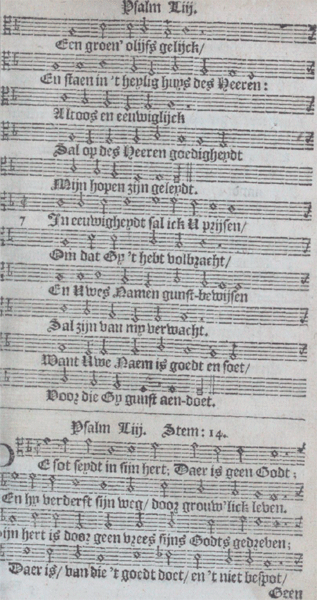 Psalm Liij.
Een groen' olijfs gelijck/
En staen in 't heylig huys des Heeren:
Altoos en eeuwiglijck
Sal op des Heeren goedigheydt
Mijn hopen zijn geleydt.
7 In eeuwigheydt sal ick U prijsen/
Om dat Gy 't hebt volbracht/
En Uwes Namen gunst-bewijsen
Sal zijn van my verwacht.
Want Uwe Naem is goedt en soet/
Voor die Gy gunst aen-doet.
Psalm Liij. Stem: 14.
DE sot seydt in sijn hert; Daer is geen Godt;
En hy verderft sijn weg/ door grouw'lick leven.
Sijn hert is door geen vrees sijns Godts gedreven;
Daer is/ van die 't goedt doet/ en 't niet bespot/
Geen